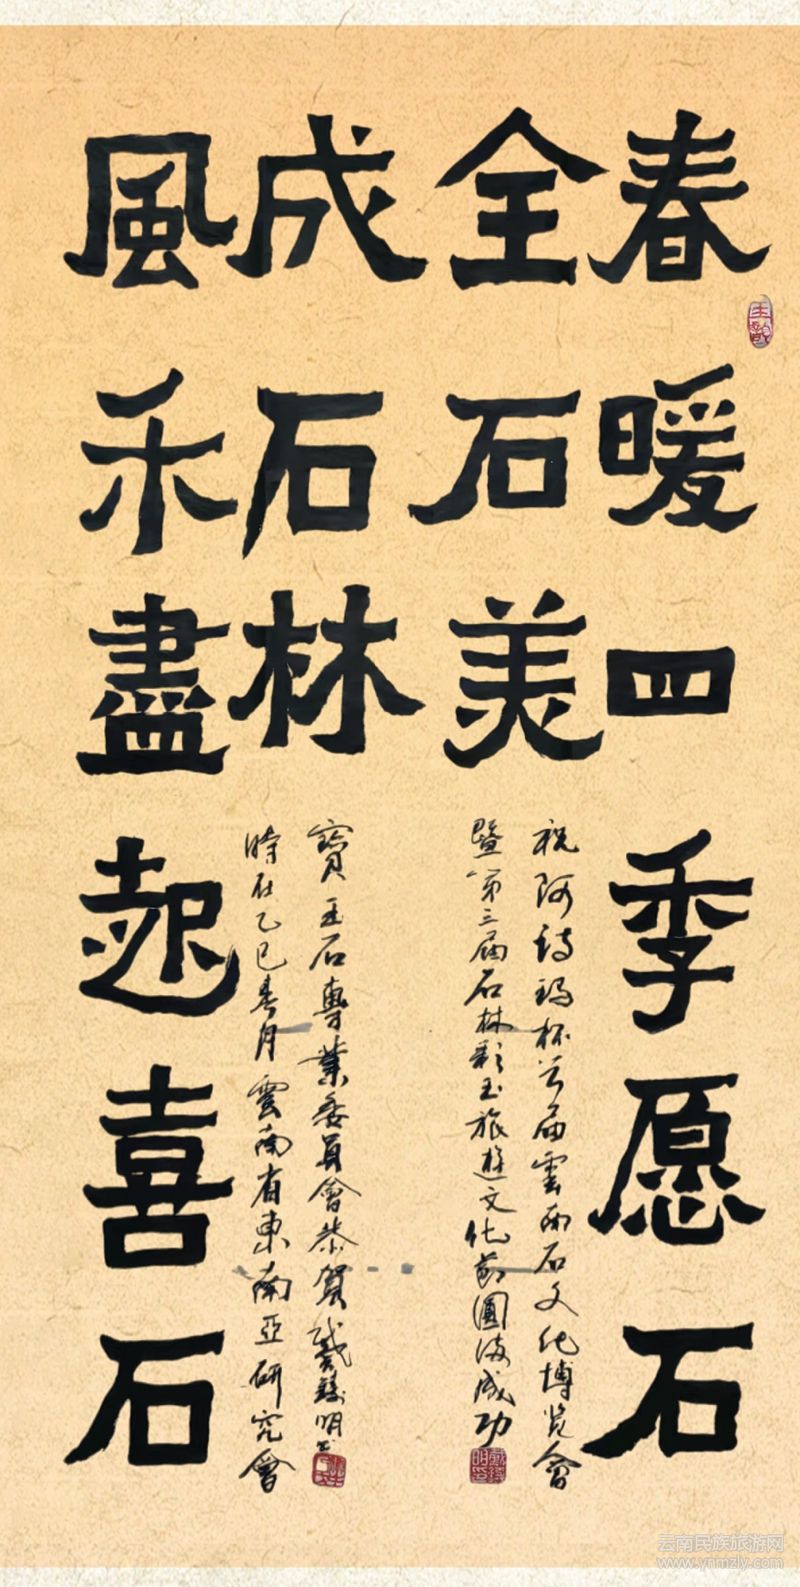 春暖四季愿石
全石美
成石林
風禾盡起喜石
祝阿詩瑪杯首届雲南石文化博览會
暨第三届石林彩玉旅遊文化節圓滿成功
時在乙巳春月雲南省東南亞研究會
寶玉石專業委員會恭賀戴明書
云南民族旅游网
www.ynmzly.com